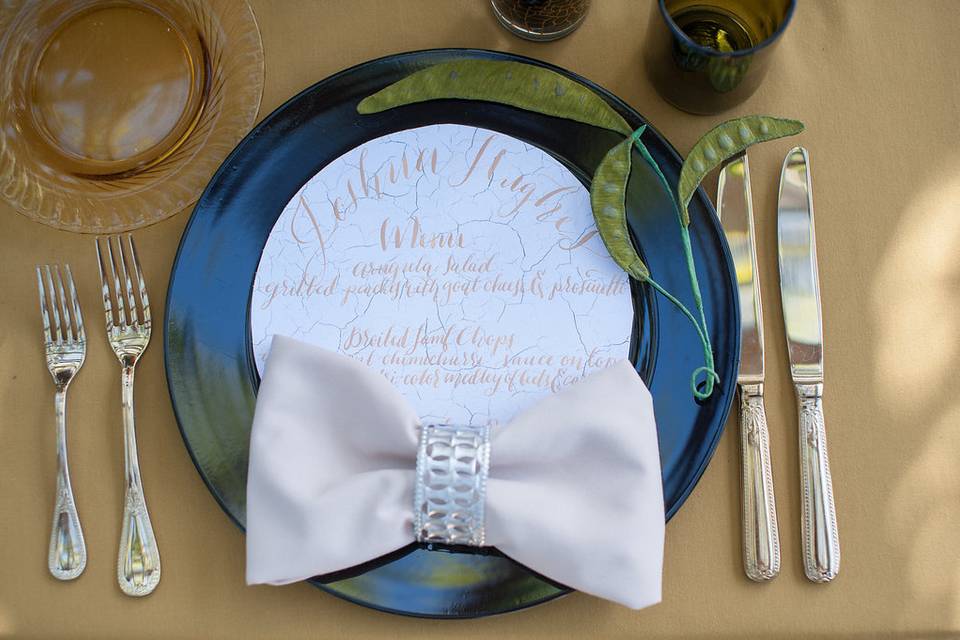 Joshua Hughes
Menu
arugula salad
grilled peaches with goat cheese & prosciutto
Broiled Lamb Chops
chimichurri sauce on top
tri-color medley of beets &